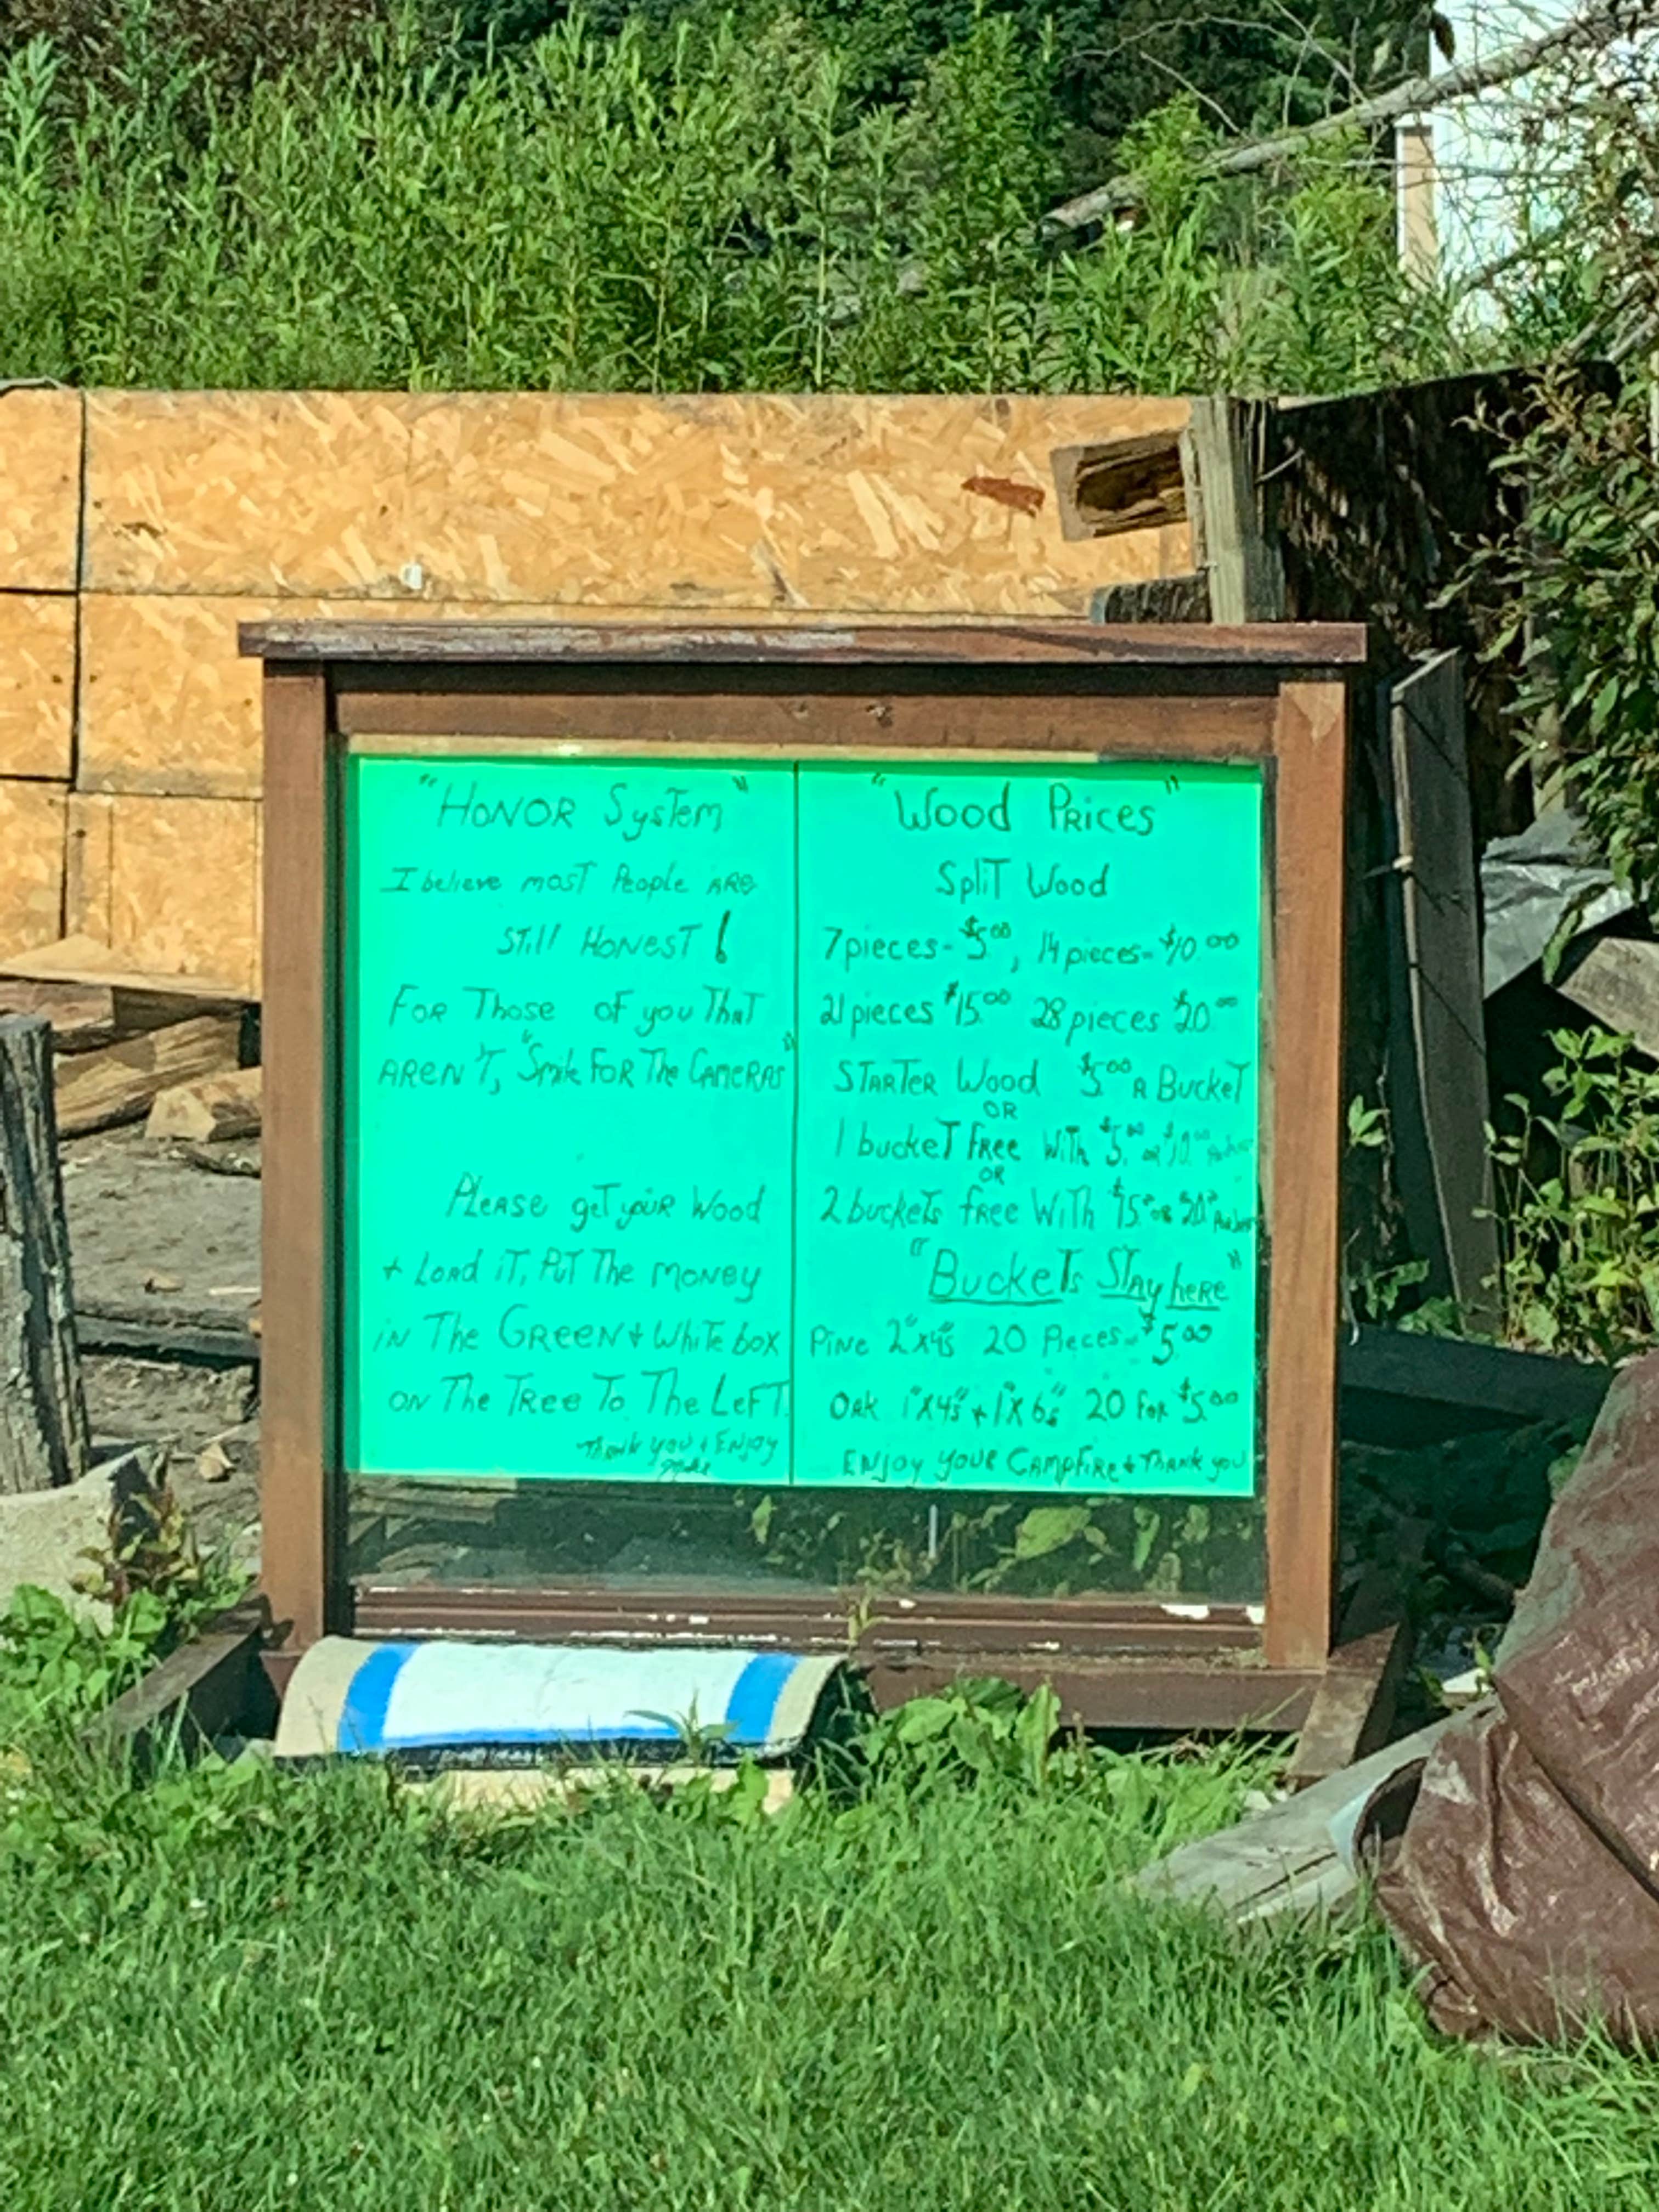 "HONOR System"
I believe most People ARE
Still HONEST!
FOR Those of you That
AREN'T, "Smile FOR The CAMERAS"
Please get your Wood
+ Load it, Put The money
in The GREEN + White box
ON The Tree To The Left.
Thank you + Enjoy
"Wood Prices"
Split Wood
7 pieces - $5.00, 14 pieces = $10.00
21 pieces $15.00 28 pieces $20.00
STARTER Wood $5.00 A Bucket
OR
1 bucket free with $5.00 or $10.00
OR
2 buckets free With $15.00 or $20.00
"Buckets Stay here"
Pine 2"x4"s 20 Pieces = $5.00
Oak 1"x4"s + 1"x6"s 20 for $5.00
Enjoy your Campfire + Thank you